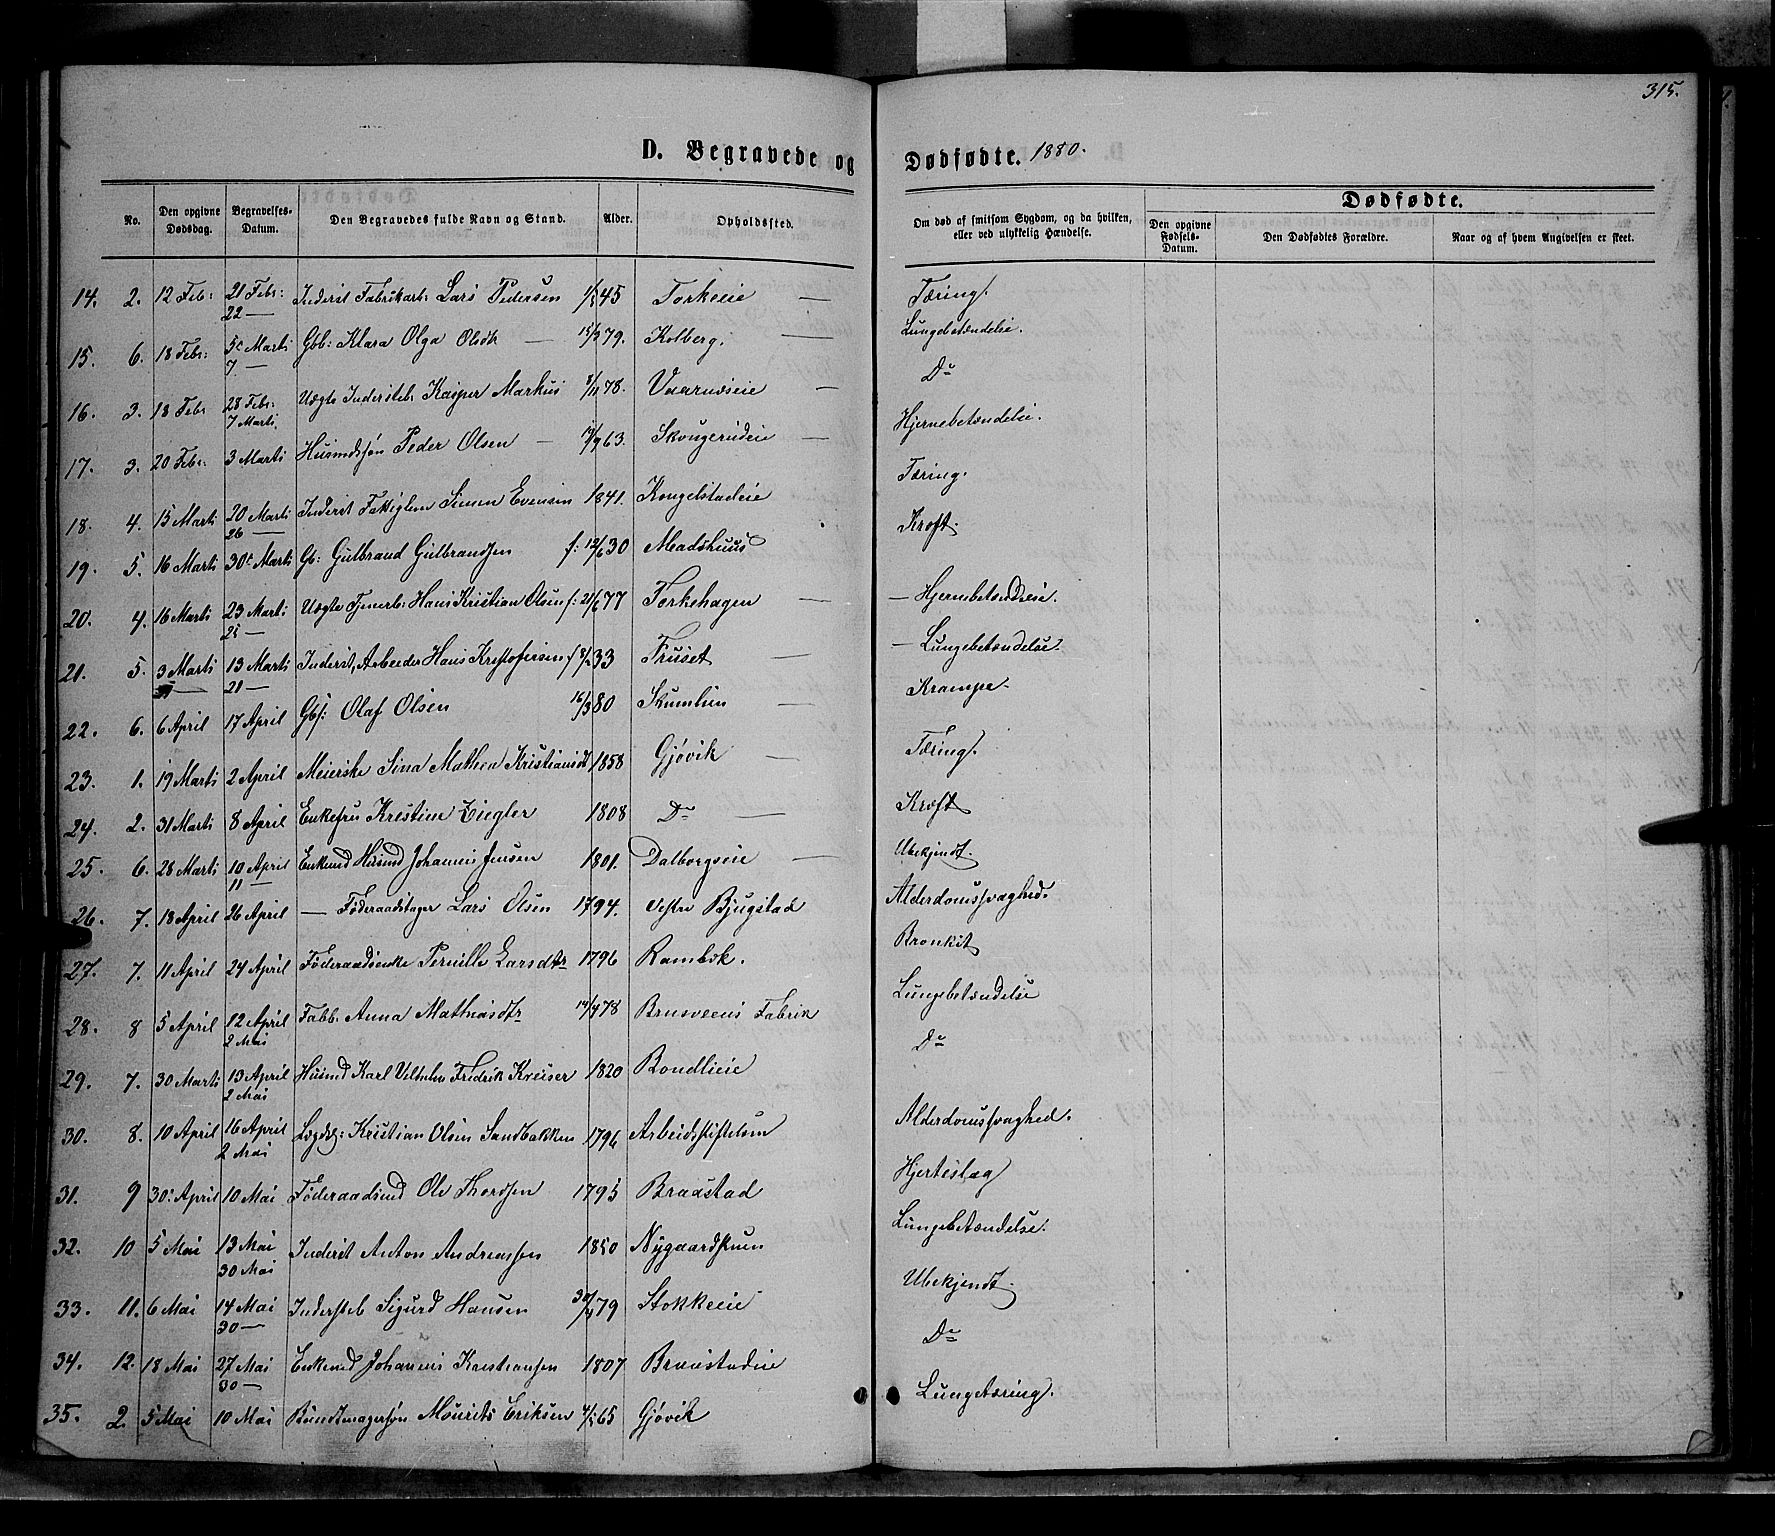 315.
D. Begravede og Dødfødte. 1880.
No. Den opgivne Dødsdag. Begravelses-Datum. Den Begravedes fulde Navn og Stand. Alder. Opholdssted. Om død af smitsom Sygdom, og da hvilken, eller ved ulykkelig Hændelse. Dødfødte. Den opgivne Fødsels-Datum. Den Dødfødtes Forældre. Naar og af hvem Angivelsen er skeet.
14. 2. 12 Feb: 21 Febr: 22 — Inderst Fabrikarb: Lars Pedersen 45 Torkeeie — Tæring.
15. 6. 18 Febr: 5te Marts 7. — Gbb: Klara Olga Olsdt — 79. Kolberg. — Lungebetændelse.
16. 3. 18 Febr 28 Febr: 7 Marts. Uægte Indersteb: Kasper Markus 8/11 78. Vaarnæseie — Do
17. 3. 20 Febr: 3 Marts Husmdssøn Peder Olsen — 63. Skougerudeie — Hjernebetændelse.
18. 4. 15 Marts 20 Marts 26 — Inderst Fattiglem Simen Evensen 1841. Kongelstadeie Tæring.
19. 5. 16 Marts 30te Marts Gb: Gulbrand Gulbrandsen f: 12/6 30 Madshuus Kræft.
20. 4. 16 Marts 23 Marts 25 — Uægte Tjenerb: Hans Kristian Olsen f: 21/6 77 Torkehagen — — Hjernebetændelse.
21. 5. 3 Marts 13 Marts 21 — Inderst, Arbeider Hans Kristofersen f 8/2 33 Fruset — — Lungebetændelse.
22. 6. 6 April 17 April Gbf: Olaf Olsen 16/3 80 Skumlien — Krampe.
23. 1. 19 Marts 2 April Meierske Sina Mathea Kristiansdt 1858 Gjøvik — Tæring.
24. 2. 31 Marts 8 April Enkefru Kristine Ziegler 1808 Do — Kræft
25. 6. 28 Marts 10 April 11 — Enkemd Husmd Johannes Jensen 1801. Dalborgseie — Ubekjendt.
26. 7. 18 April 26 April — Føderaadstager Lars Olsen 1794. Vestre Bjugstad Alderdomssvaghed.
27. 7. 11 April 24 April Føderaadsenke Pernille Larsdtr 1796 Rambek. Bronkit
28. 8 5 April 12 April 2 Mai Fabb. Anna Mathiasdtr 14/4 78 Brusveens Fabrik Lungebetændelse
29. 7. 30 Marts 13 April 2 Mai Husmd Karl Vilhelm Fredrik Kreiser 1820 Bondlieie Do
30. 8. 10 April 16 April 2 Mai Lægdsl: Kristian Olsen Sandbakken 1796 Arbeidsstiftelsen Alderdomssvaghed.
31. 9 30te April 10 Mai Føderaadsmd Ole Thordsen 1795 Braastad Hjerteslag
32. 10 5 Mai 13 Mai 30 Mai Inderst Anton Andreassen 1850 Nygaardshuen Lungebetændelse.
33. 11. 6 Mai 14 Mai 30 — Intersteb Sigurd Hansen 79 Stokkeeie Ubekjendt.
34. 12. 18 Mai 27 Mai 30 — Enkemd Johannes Kristiansen 1807 Braastadeie Do
35. 2. 5 Mai 10 Mai Bundtmagersøn Mourits Eriksen 65 Gjøvik Lungetæring.